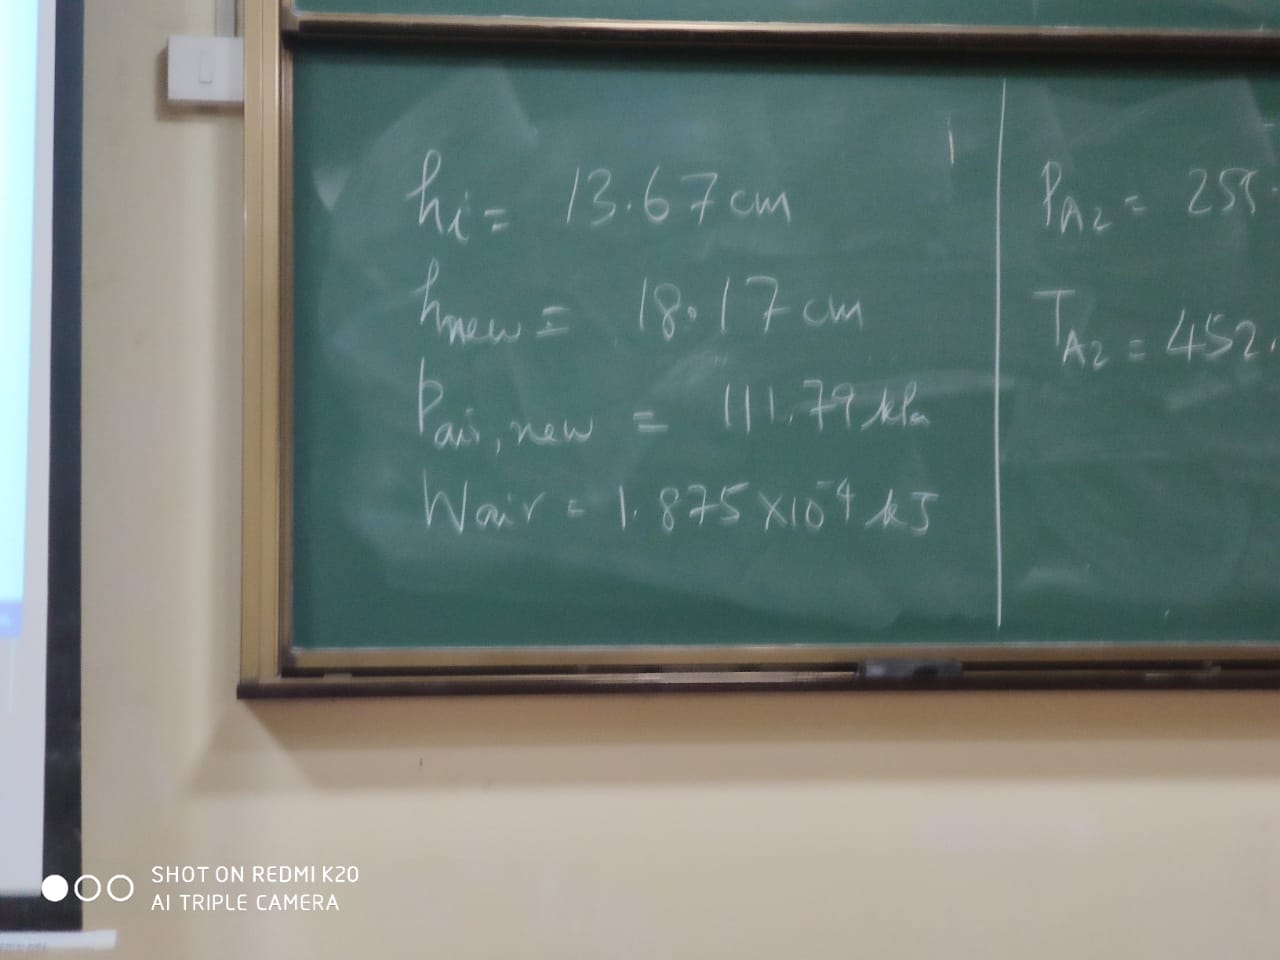 hi = 13.67 cm
hnew = 18.17 cm
Pair, new = 111.79 kPa
Wair = 1.875 x10^-4 kJ
PA2 = 255
TA2 = 452.
SHOT ON REDMI K20
AI TRIPLE CAMERA